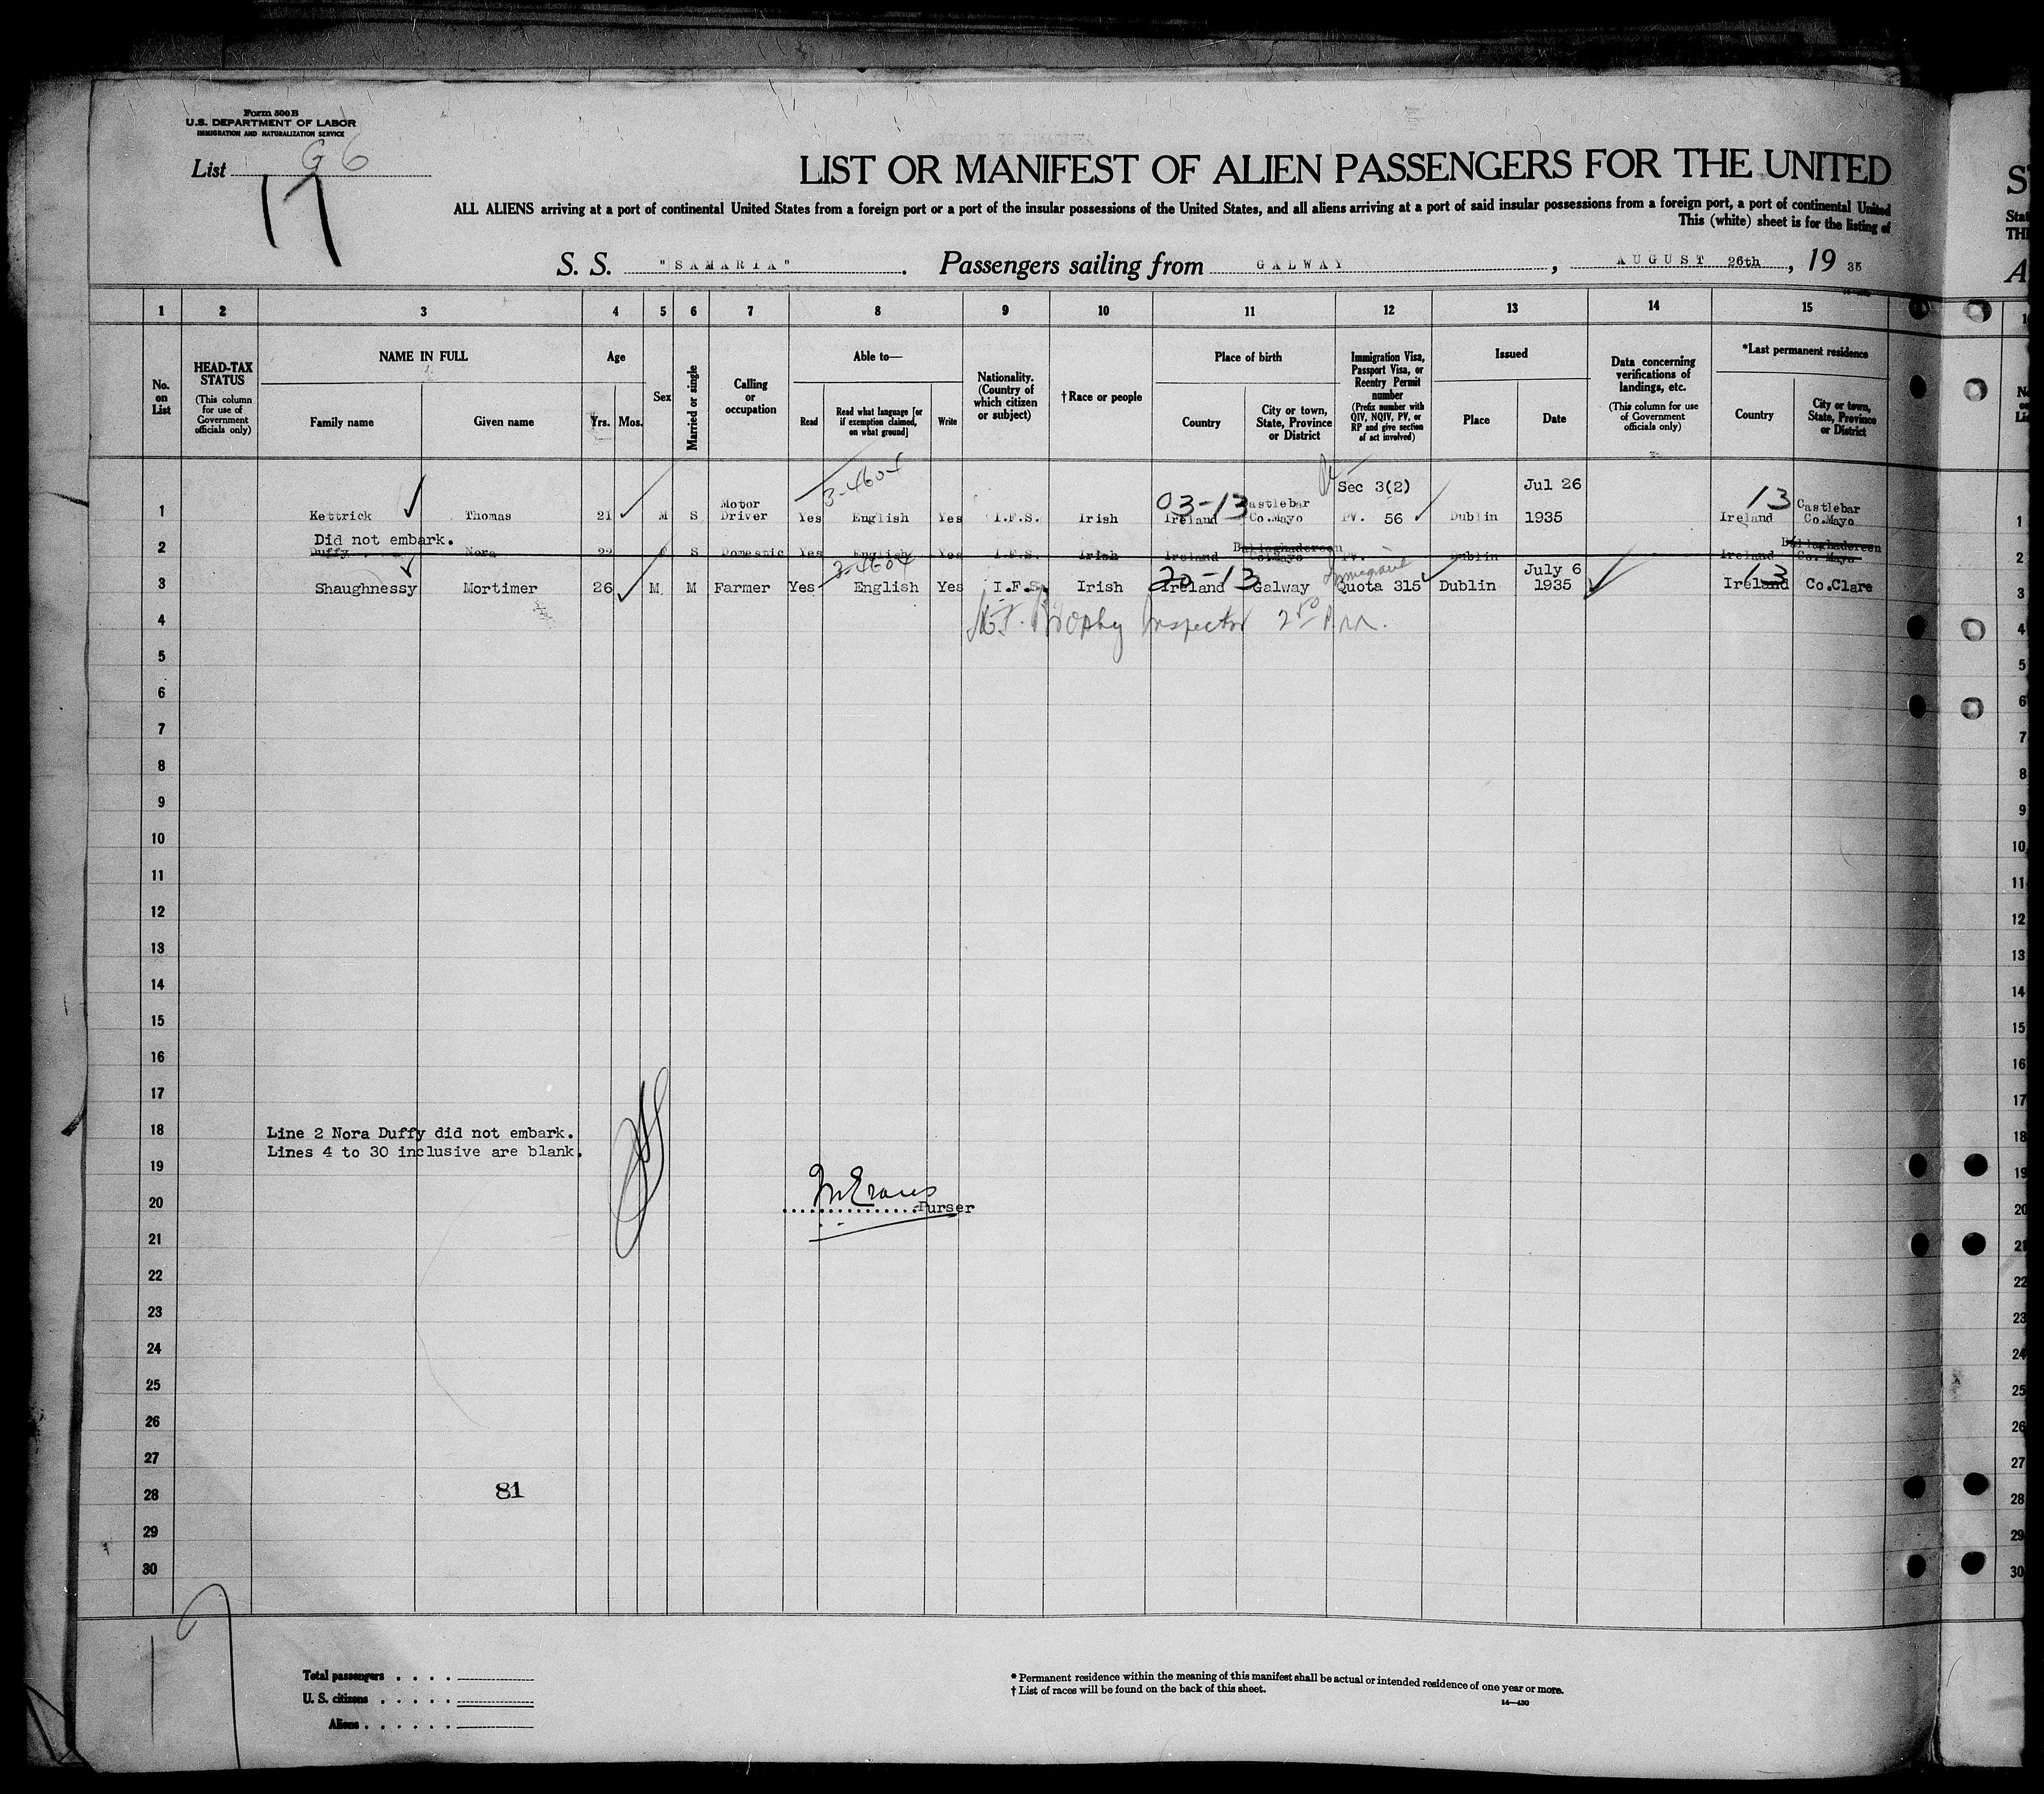 Form 500 B
U.S. DEPARTMENT OF LABOR
IMMIGRATION AND NATURALIZATION SERVICE
List G 6
17
LIST OR MANIFEST OF ALIEN PASSENGERS FOR THE UNITED
ALL ALIENS arriving at a port of continental United States from a foreign port or a port of the insular possessions of the United States, and all aliens arriving at a port of said insular possessions from a foreign port, a port of continental United
This (white) sheet is for the listing of
S. S. "SAMARIA". Passengers sailing from GALWAY, AUGUST 26th, 19 35
1 2 3 4 5 6 7 8 9 10 11 12 13 14 15
No. on List
HEAD-TAX STATUS (This column for use of Government officials only)
NAME IN FULL Family name Given name
Age Yrs. Mos.
Sex
Married or single
Calling or occupation
Able to— Read Read what language [or if exemption claimed, on what ground] Write
Nationality. (Country of which citizen or subject)
†Race or people
Place of birth Country City or town, State, Province or District
Immigration Visa, Passport Visa, or Reentry Permit number (Prefix number with QIV, NQIV, PV, or RP and give section of act involved)
Issued Place Date
Data concerning verifications of landings, etc. (This column for use of Government officials only)
*Last permanent residence Country City or town, State, Province or District
3-4604
Sec 3(2) Jul 26
Motor 03-13 Castlebar 13 Castlebar
1 Kettrick Thomas 21 M S Driver Yes English Yes I.F.S. Irish Ireland Co.Mayo PV. 56 Dublin 1935 Ireland Co.Mayo 1
Did not embark. Ballaghadereen Ballaghadereen
2 Duffy Nora 22 F S Domestic Yes English Yes I.F.S. Irish Ireland Co.Mayo PV. Dublin Ireland Co. Mayo 2
3-4604 20-13 Immigrant July 6 13
3 Shaughnessy Mortimer 26 M M Farmer Yes English Yes I.F.S. Irish Ireland Galway Quota 315 Dublin 1935 Ireland Co.Clare 3
4 Brophy Inspector 4
5 5
6 6
7 7
8 8
9 9
10 10
11 11
12 12
13 13
14 14
15 15
16 16
17 17
18 Line 2 Nora Duffy did not embark. 18
Lines 4 to 30 inclusive are blank.
19 19
20 Evans Purser 20
21 21
22 22
23 23
24 24
25 25
26 26
27 27
28 81 28
29 29
30 30
17
Total passengers . . . .
U. S. citizens . . . . .
Aliens . . . . . .
* Permanent residence within the meaning of this manifest shall be actual or intended residence of one year or more.
† List of races will be found on the back of this sheet.
14—430